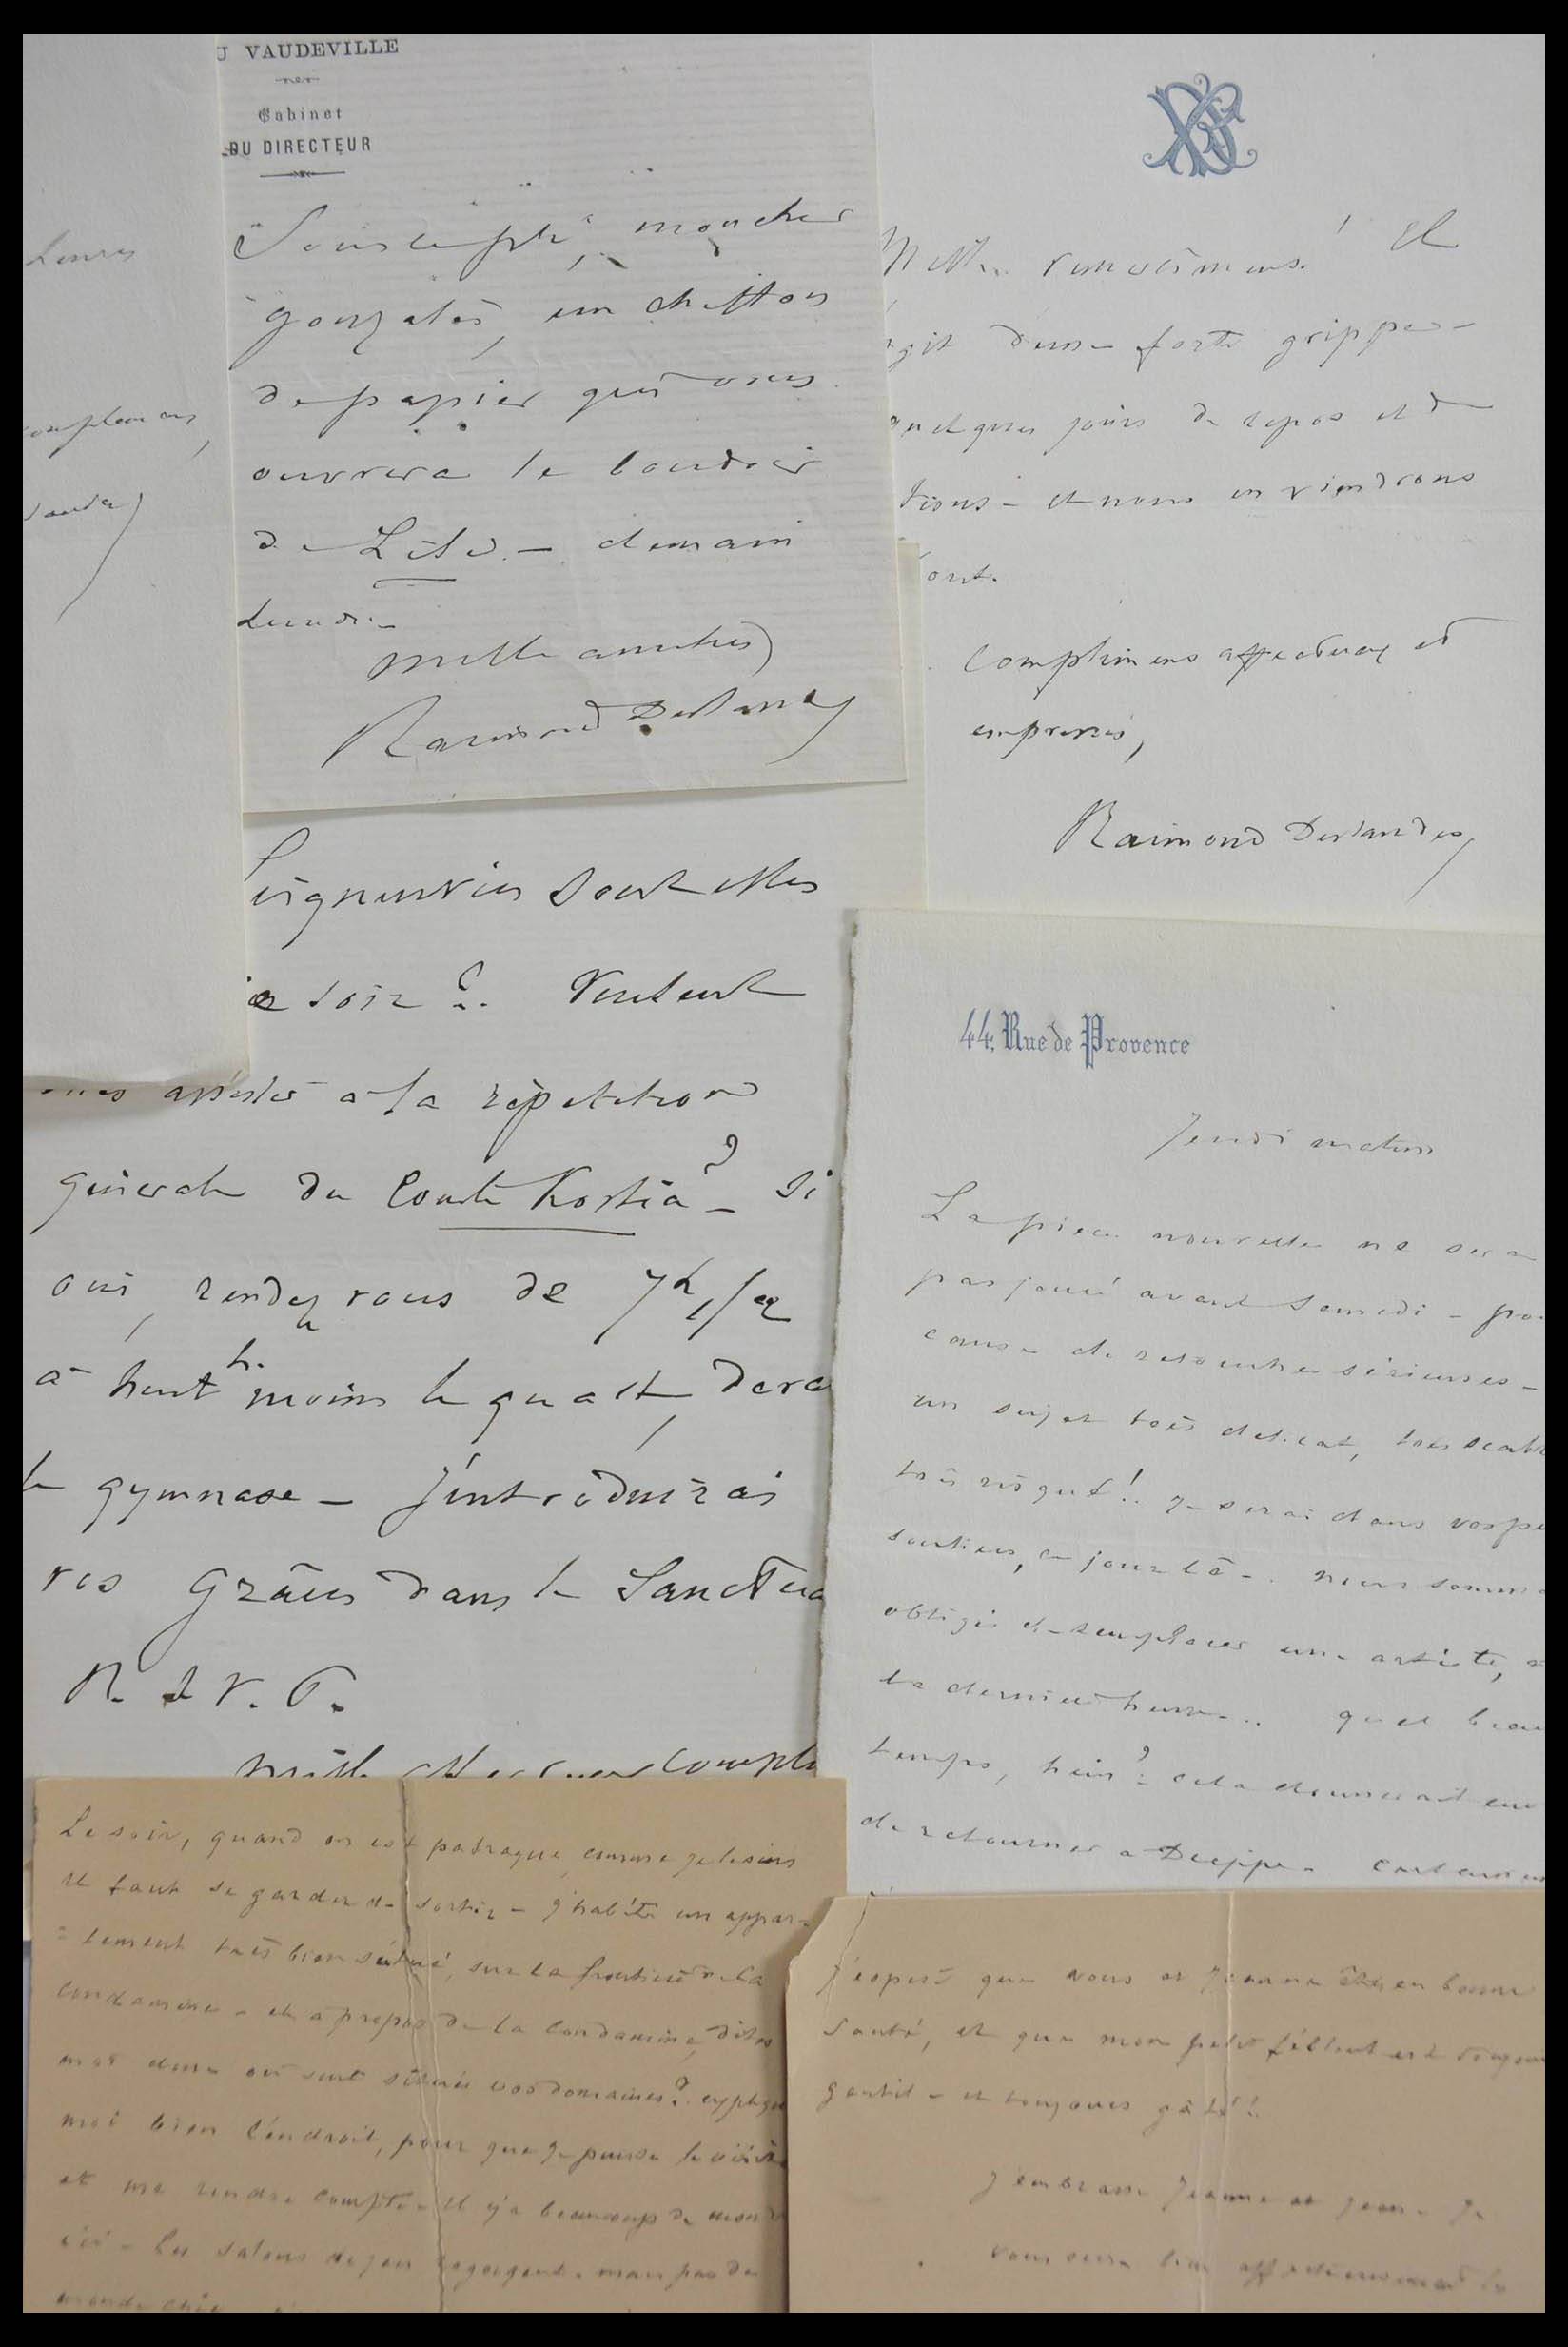 U VAUDEVILLE
Cabinet
DU DIRECTEUR
Sous ce pli, mon cher
Gonzalès, un chiffon
de papier qui vous
ouvrira le boudoir
de Lili. — demain
Lundi —
mille amitiés
Raimond Deslandes
Mille remerciemens! Il
agit d'une forte grippe —
quelques jours de repos et de
tions — et nous en viendrons
out.
Complimens affectueux et
empressés,
Raimond Deslandes
omplemens,
landes
eigneuries sont elles
soir? Veulent
assister à la répétition
générale du Comte Kostia? — Si
oui, rendez vous de 7h 1/2
à huit h. moins le quart, devant
le gymnase — J'introduirai
vos Grâces dans le Sanctua
R. S. V. P.
mille compli
44, Rue de Provence
Jeudi matin
La pièce nouvelle ne sera
pas jouée avant Samedi — pour
cause de retouches sérieuses —
un sujet très délicat, très scab
très risqué!.. Je serai dans vos pe
soutiens, ce jour là —. nous somm
obligés de remplacer une artiste, à
la dernière heure... quel beau
temps, hein? cela donnerait env
de retourner à Dieppe —
Le soir, quand on est patraque, comme je le suis
il faut se garder de sortir — J'habite un appar-
=tement très bien situé, sur la frontière de la
Condamine — et à propos de la Condamine, dites
moi donc où sont situés vos domaines? expliquez
moi bien l'endroit, pour que je puisse le
et me rendre compte — Il y a beaucoup de monde
ici — les salons de jeu regorgent — mais pas de
monde chic
J'espère que vous et Jeanne êtes en bonne
santé, et que mon petit filleul est toujours
gentil — et toujours gâté!
J'embrasse Jeanne et Jean — Je
vous serre bien affectueusement la